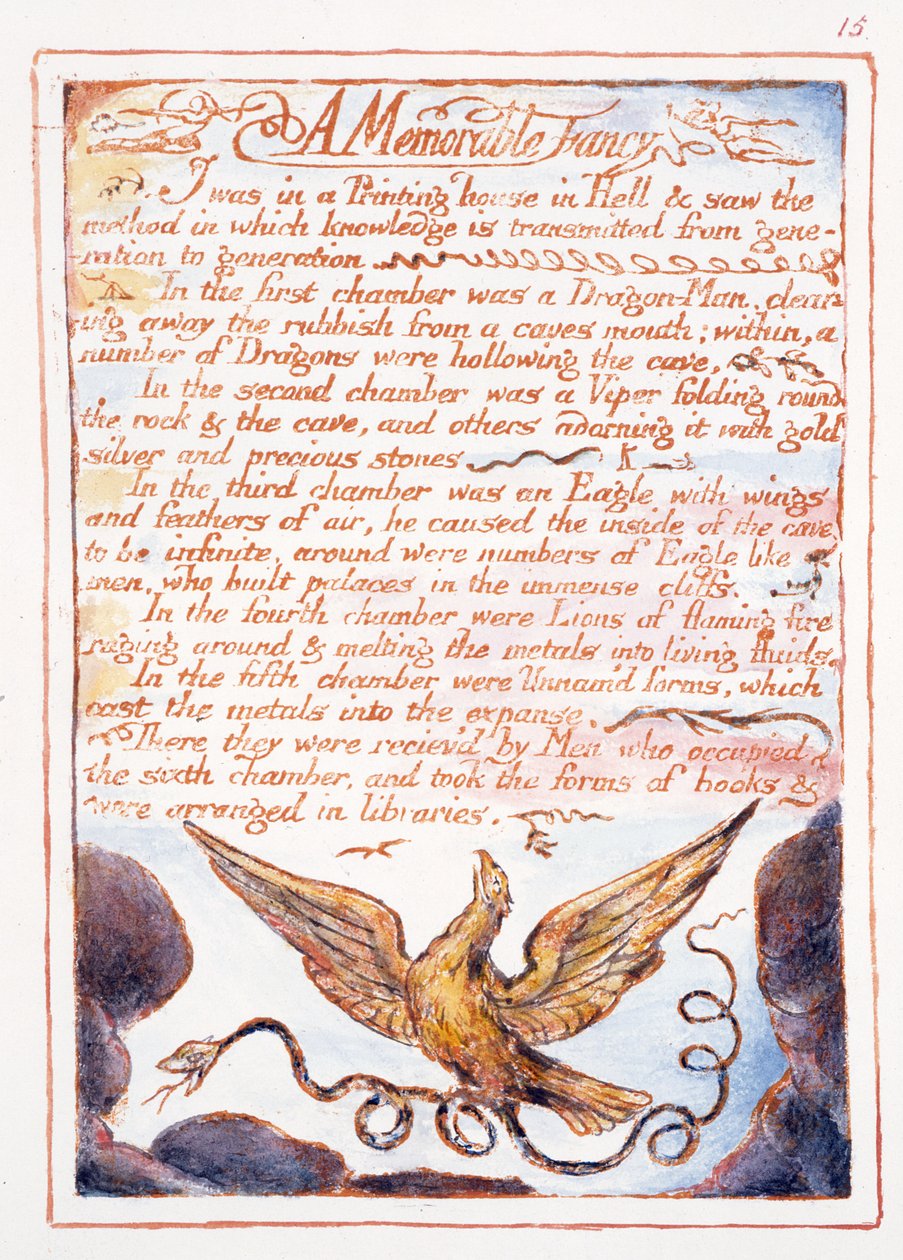 15
A Memorable Fancy
I was in a Printing house in Hell & saw the
method in which knowledge is transmitted from gene-
ration to generation
In the first chamber was a Dragon-Man, clear-
ing away the rubbish from a caves mouth; within, a
number of Dragons were hollowing the cave,
In the second chamber was a Viper folding round
the rock & the cave, and others adorning it with gold
silver and precious stones
In the third chamber was an Eagle with wings
and feathers of air, he caused the inside of the cave
to be infinite, around were numbers of Eagle like
men, who built palaces in the immense cliffs.
In the fourth chamber were Lions of flaming fire
raging around & melting the metals into living fluids.
In the fifth chamber were Unnam'd forms, which
cast the metals into the expanse.
There they were reciev'd by Men who occupied
the sixth chamber, and took the forms of books &
were arranged in libraries.